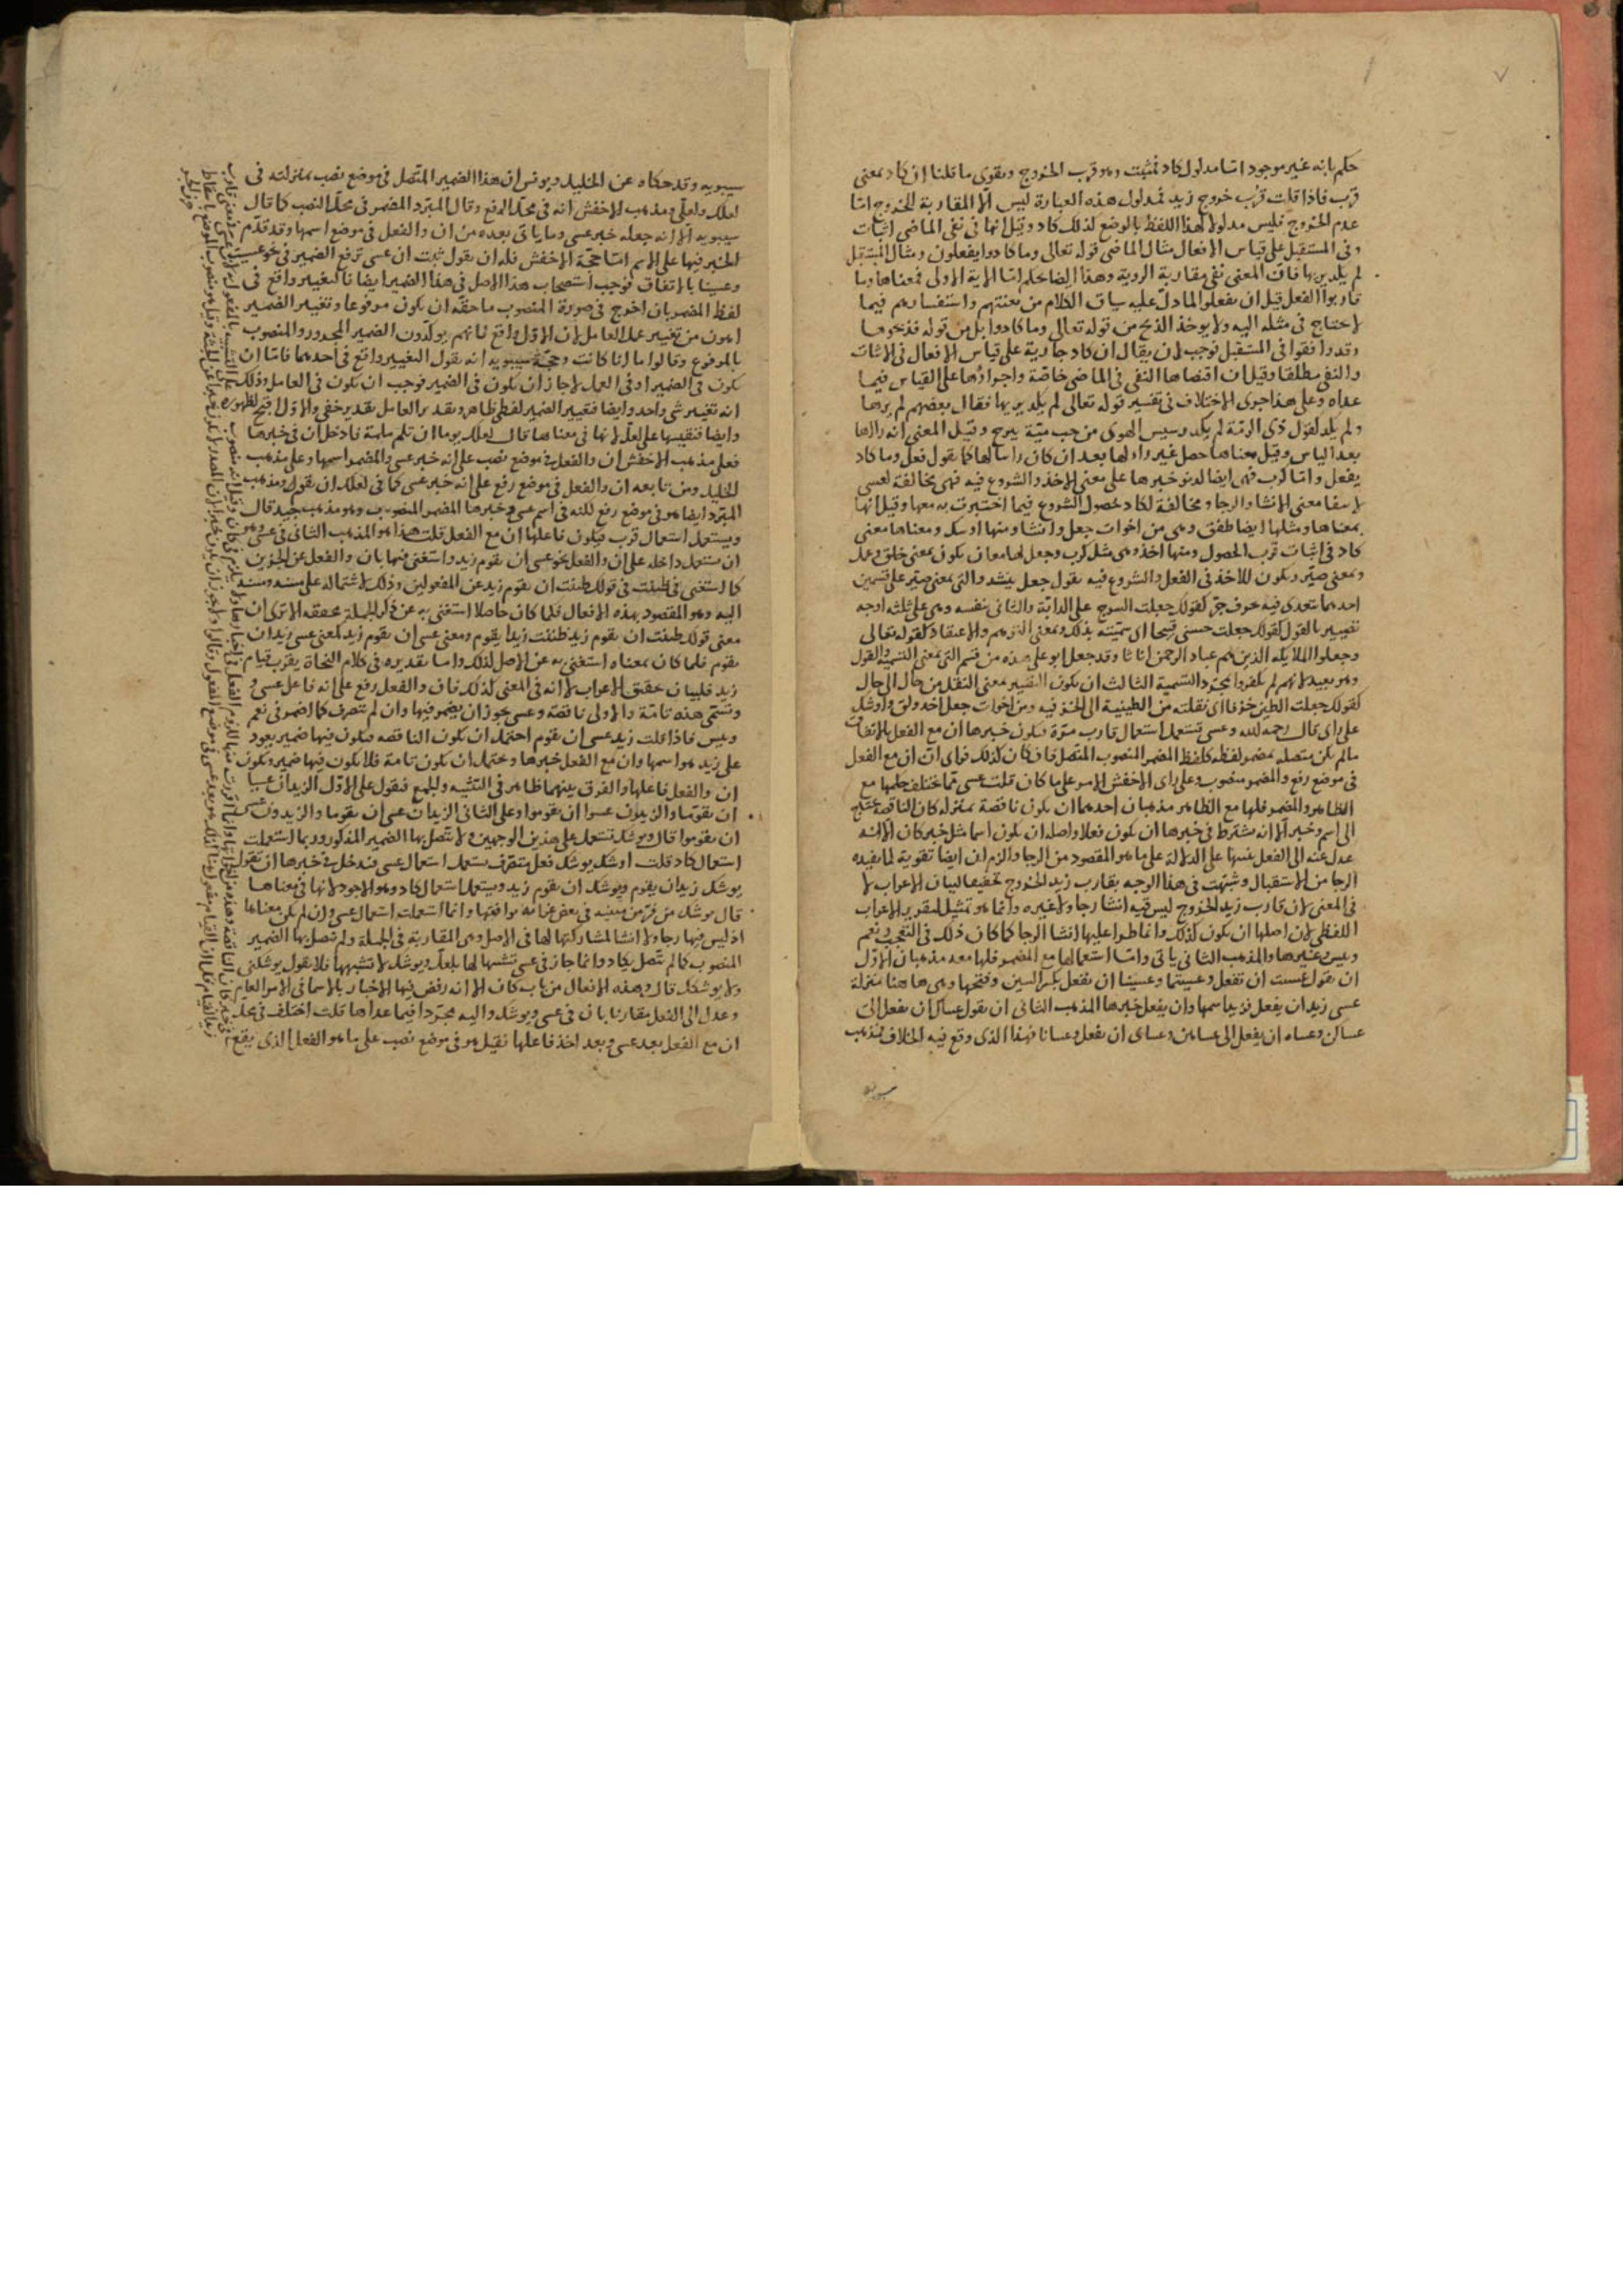 حكم بانه غير موجود اما مدلول كاد فمثبت وهو قرب الخروج ويقوى ما قلنا ان كاد بمعنى
قرب فاذا قلت قرب خروج زيد فمدلول هذه العبارة ليس الا المقاربة للخروج اما
عدم الخروج فليس مدلولا لهذا اللفظ بالوضع لذلك كاد وقيل انها في نفى الماضى اثبات
وفى المستقبل على قياس الافعال مثال الماضى قوله تعالى وما كادوا يفعلون ومثال المستقبل
لم يكد يريها فان المعنى نفى مقاربة الروية وهذا ايضا حكم اما الاية الاولى فمعناها وما
قاربوا الفعل قبل ان يفعلوا لما دل عليه سياق الكلام من تعنتهم واستفسارهم فيما
لا يحتاج في مثله اليه ولا يوخذ الذبح من قوله تعالى وما كادوا بل من قوله فذبحوها
وقد وافقوا فى المستقبل فوجب ان يقال ان كاد جارية على قياس الافعال فى الاثبات
والنفى مطلقا وقيل ان اقتضاها النفى فى الماضى خاصة واجراؤها على القياس فيما
عداه وعلى هذا جرى الاختلاف فى تفسير قوله تعالى لم يكد يريها فقال بعضهم لم يرها
ولم يكد كقول ذى الرمة لم يكد رسيس الهوى من حب مية يبرح وقيل المعنى انه رااها
بعد الياس وقيل معناها حصل غير راء لها بعد ان كان رائيا لها كما يقول فعل وما كاد
يفعل واما كرب فهى ايضا لدنو خبرها على معنى الاخذ والشروع فيه فهى مخالفة لعسى
لانتفا معنى الانشا والرجا ومخالفة لكاد لحصول الشروع فيما اخبرت به معها وقيل انها
بمعناها ومثلها ايضا طفق وهى من اخوات جعل وانشا ومنها اوشك ومعناها معنى
كاد فى اثبات قرب الحصول ومنها اخذ وهى مثل كرب وجعل لها معان يكون بمعنى خلق وعمل
وبمعنى صير ويكون للاخذ فى الفعل والشروع فيه يقول جعل ينشد والتى بمعنى صير على قسمين
احدهما تتعدى فيه بحرف جر كقولك جعلت السرج على الدابة والثانى بنفسه وهى على ثلثه اوجه
تصيير بالقول كقولك جعلت حسنى قبيحا اى سميته بذلك وبمعنى التوهم والاعتقاد كقوله تعالى
وجعلوا الملايكة الذين هم عباد الرحمن اناثا وقد جعل ابو على هذه من قسم التى بمعنى التسمية والقول
وهو بعيد لانهم لم يكفروا بمجرد التسمية الثالث ان يكون التصيير بمعنى النقل من حال الى حال
كقولك جعلت الطين خزفا اى نقلته من الطينية الى الخزفيه ومن اخوات جعل اخذ وطفق واوشك
على راى قال رحمه الله وعسى تستعمل استعمال قارب مرة فيكون خبرها ان مع الفعل بالاتفاق
ما لم يكن متصله بمضمر لفظه كلفظ المضمر المنصوب المتصل فان كان كذلك فراى ان ان مع الفعل
فى موضع رفع والمضمر منصوب وعلى راى الاخفش الامر على ما كان قلت عسى مما يختلف حكمها مع
الظاهر والمضمر فلها مع الظاهر مذهبان احدهما ان يكون ناقصة بمنزلة كان الناقصة يحتاج
الى اسم وخبر الا انه يشترط فى خبرها ان يكون فعلا واصله ان يكون اسما مثل خبر كان الا انه
عدل عنه الى الفعل تنبيها على الدلالة على ما هو المقصود من الرجا والزم ان ايضا تقوية لما يفيده
الرجا من الاستقبال وشبهت فى هذا الوجه بقارب زيد الخروج تحقيقا لبيان الاعراب لا
فى المعنى لان قارب زيد الخروج ليس فيه انشا رجا ولا غيره وانما هو تمثيل لتقرير الاعراب
اللفظى لان اصلها ان يكون كذلك وانما طرا عليها انشا الرجا كما كان ذلك فى التعجب ونعم
وبيس وغيرها والمذهب الثانى ياتى واما استعمالها مع المضمر فلها معه مذهبان الاول
ان يقول عسيت ان تفعل وعسيتما وعسينا ان نفعل بكسر السين وفتحها وهى هاهنا بمنزلة
عسى زيد ان يفعل فزيد اسمها وان يفعل خبرها المذهب الثانى ان يقول عساك ان تفعل الى
عساكن وعساه ان يفعل الى عساهن وعساى ان نفعل وعسانا فهذا الذى وقع فيه الخلاف فمذهب
سيبويه
سيبويه وقد حكاه عن الخليل ويونس ان هذا الضمير المتصل فى موضع نصب بمنزلته فى
لعلك ولعلى ومذهب الاخفش انه فى محل الرفع وقال المبرد المضمر فى محل النصب كما قال
سيبويه الا انه جعله خبر عسى وما ياتى بعده من ان والفعل فى موضع اسمها وقد تقدم
الخبر فيها على الاسم اما حجة الاخفش فله ان يقول ثبت ان عسى ترفع الضمير فى نحو عسيت
وعسينا بالاتفاق فوجب استصحاب هذا الاصل فى هذا الضمير ايضا فالتغيير واقع فى
لفظ المضمر بان اخرج فى صورة المنصوب ما حقه ان يكون مرفوعا وتغيير الضمير
اهون من تغيير عمل العامل لان الاول واقع فانهم يوكدون الضمير المجرور والمنصوب
بالمرفوع وقالوا ما انا كانت وحجة سيبويه انه يقول التغيير واقع فى احدهما فاما ان
يكون فى الضمير او فى العمل لا جاز ان يكون فى الضمير فوجب ان يكون فى العامل وذلك
انه تغيير شى واحد وايضا فتغيير الضمير لفظى ظاهر وتقدير العامل تقدير خفى والاول اقبح لظهوره
وايضا فنقيسها على لعل لانها فى معناها قال لعلك يوما ان تلم ملمة فادخل ان فى خبرها
فعلى مذهب الاخفش ان والفعل فى موضع نصب على انه خبر عسى والمضمر اسمها وعلى مذهب
الخليل ومن تابعه ان والفعل فى موضع رفع على انه خبر عسى كما فى لعلك ان يقول ومذهب
المبرد ايضا هو فى موضع رفع لكنه فى اسم عسى وخبرها المضمر المنصوب وهو مذهب جيد قال
ويستعمل استعمال قرب فيكون فاعلها ان مع الفعل قلت هذا هو المذهب الثانى فى عسى وهو
ان يستعمل داخله على ان والفعل نحو عسى ان يقوم زيد واستغنى فيها بان والفعل عن الجزين
كما استغنى فى ظننت فى قولك ظننت ان يقوم زيد عن المفعولين وذلك لاشتماله على مسند ومسند
اليه وهو المقصود بهذه الافعال فلما كان حاصلا استغنى به عن ذكر الجملة محققه الا ترى ان
معنى قولك ظننت ان يقوم زيد ظننت زيدا يقوم ومعنى عسى ان يقوم زيد كمعنى عسى زيد ان
يقوم فلما كان بمعناه استغنى به عن الاصل لذلك واما تقديره فى كلام النحاة يقرب قيام
زيد فلبيان تحقيق الاعراب لا انه فى المعنى كذلك فان والفعل رفع على انه فاعل عسى و
وتسمى هذه تامة والاولى ناقصة وعسى يجوز ان يضمر فيها وان لم تتصرف كما اضمر فى نعم
وبيس فاذا قلت زيد عسى ان يقوم احتمل ان يكون الناقصه فيكون فيها ضمير يعود
على زيد هو اسمها وان مع الفعل خبرها ويحتمل ان يكون تامة فلا يكون فيها ضمير ويكون
ان والفعل فاعلها والفرق بينهما ظاهر فى التثنيه والجمع فتقول على الاول الزيدان عسيا
ان يقوما والزيدون عسوا ان يقوموا وعلى الثانى الزيدان عسى ان يقوما والزيدون عسى
ان يقوموا قال ويوشك تستعمل على هذين الوجهين ولا يتصل بها الضمير المذكور وربما استعملت
استعمال كاد قلت اوشك يوشك فعل متصرف يستعمل استعمال عسى فتدخل فى خبرها ان تقول
يوشك زيد ان يقوم ويوشك ان يقوم زيد ويستعمل استعمال كاد وهو الاجود لانها فى معناها
قال يوشك من فر من منيته فى بعض غراته يوافقها وانما استعملت استعمال عسى وان لم يكن معناها
اذ ليس فيها رجا ولا انشا لمشاركتها لها فى الاصل وهى المقاربة فى الجملة ولم تتصل بها الضمير
المنصوب كما لم يتصل بكاد وانما جاز فى عسى تشبيها لها بلعل ويوشك لا تشبهها فلا يقول يوشكنى
ولا يوشكك قال وهذه الافعال من باب كان الا انه رفض فيها الاخبار بالاسما فى الامر العام
وعدل الى الفعل مقارنا بان فى عسى ويوشك واليه مجردا فيما عداها قلت اختلف فى محل
ان مع الفعل بعد عسى وبعد اخذ فاعلها فقيل هو فى موضع نصب على ما هو الفعل الذى يقع